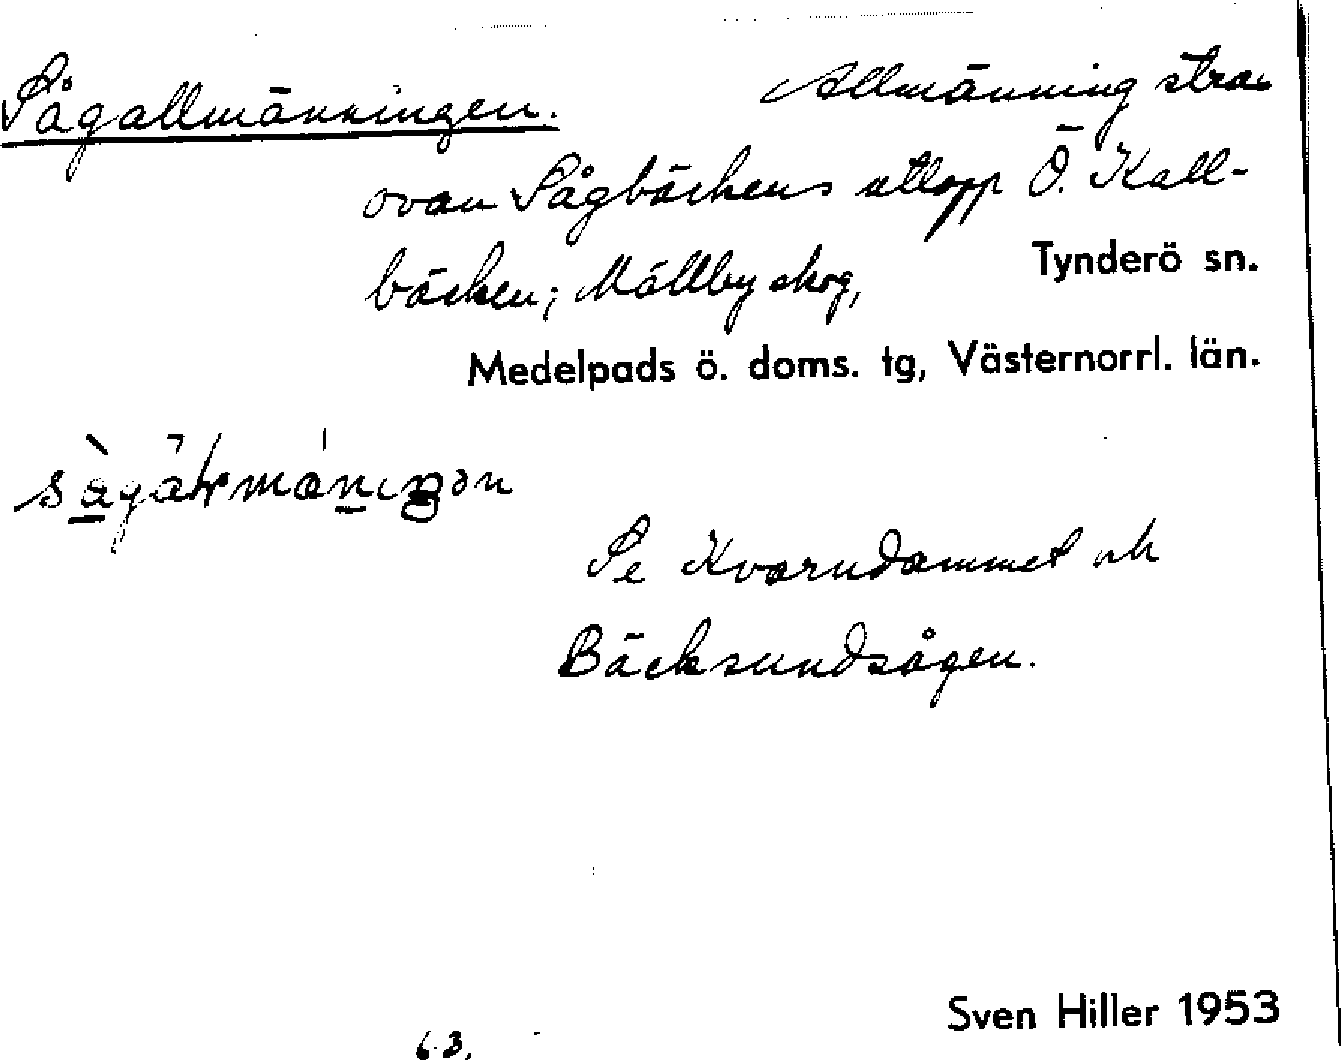 Sågallmänningen. Allmänning strax
ovan Sågbäckens utlopp Ö. Kall-
bäcken; Mällby skog, Tynderö sn.
Medelpads ö. doms. tg, Västernorrl. län.
Se Kvarndammet och
Bäcksundsågen.
Sven Hiller 1953
6.3.